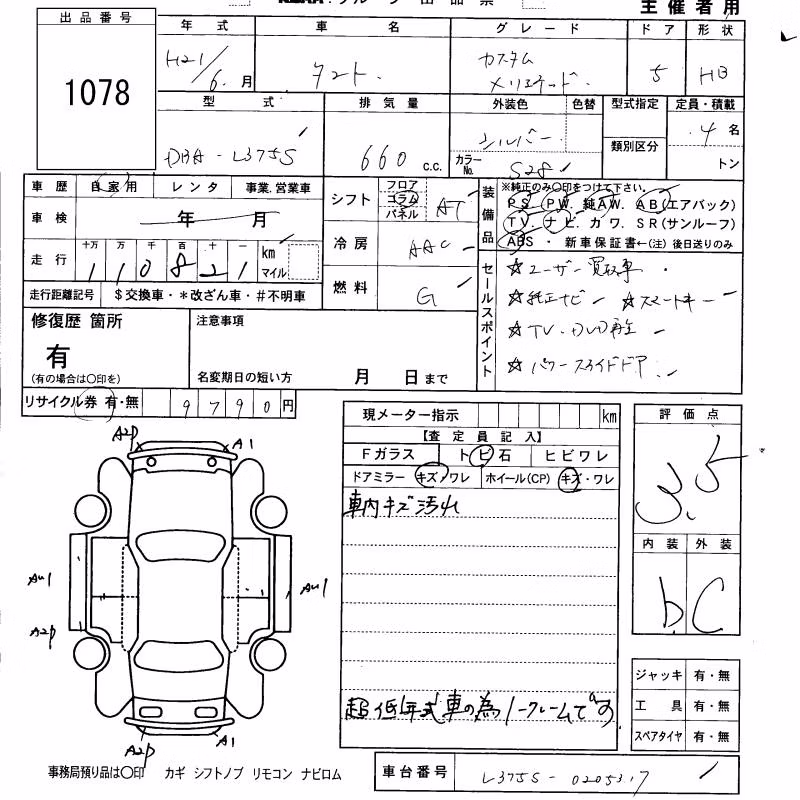 主催者用
出品番号
1078
年式 車名 グレード ドア 形状
H21/6月 タント カスタム 5 HB
型式 排気量 外装色 色替 型式指定 定員・積載
DBA-L375S 660 c.c. シルバー 類別区分 4名
カラーNo. S28 トン
車歴 自家用 レンタ 事業.営業車
車検 年 月
走行 十万 万 千 百 十 一
110821 km マイル
走行距離記号 $交換車・*改ざん車・#不明車
シフト フロア コラム パネル AT
冷房 AAC
燃料 G
装備品
※純正のみ〇印をつけて下さい.
PS. PW. 純AW. AB(エアバック)
TV. ナビ. カワ. SR(サンルーフ)
ABS・新車保証書←(注) 後日送りのみ
セールスポイント
☆ユーザー買取車
☆純正ナビ ☆スマートキー
☆TV・DVD再生
☆パワースライドドア
修復歴 箇所
有
(有の場合は〇印を)
注意事項
名変期日の短い方 月 日まで
リサイクル券 有・無 9790円
現メーター指示 km
【査定員記入】
Fガラス トビ石 ヒビワレ
ドアミラー キズ/ワレ ホイール(CP) キズ・ワレ
車内キズ汚れ
超低年式車の為ノークレームです
評価点
3.5
内装 外装
b C
ジャッキ 有・無
工具 有・無
スペアタイヤ 有・無
A2P A1
AU1 AU1
A2P
A2P A1
事務局預り品は〇印 カギ シフトノブ リモコン ナビロム
車台番号 L375S-0205317